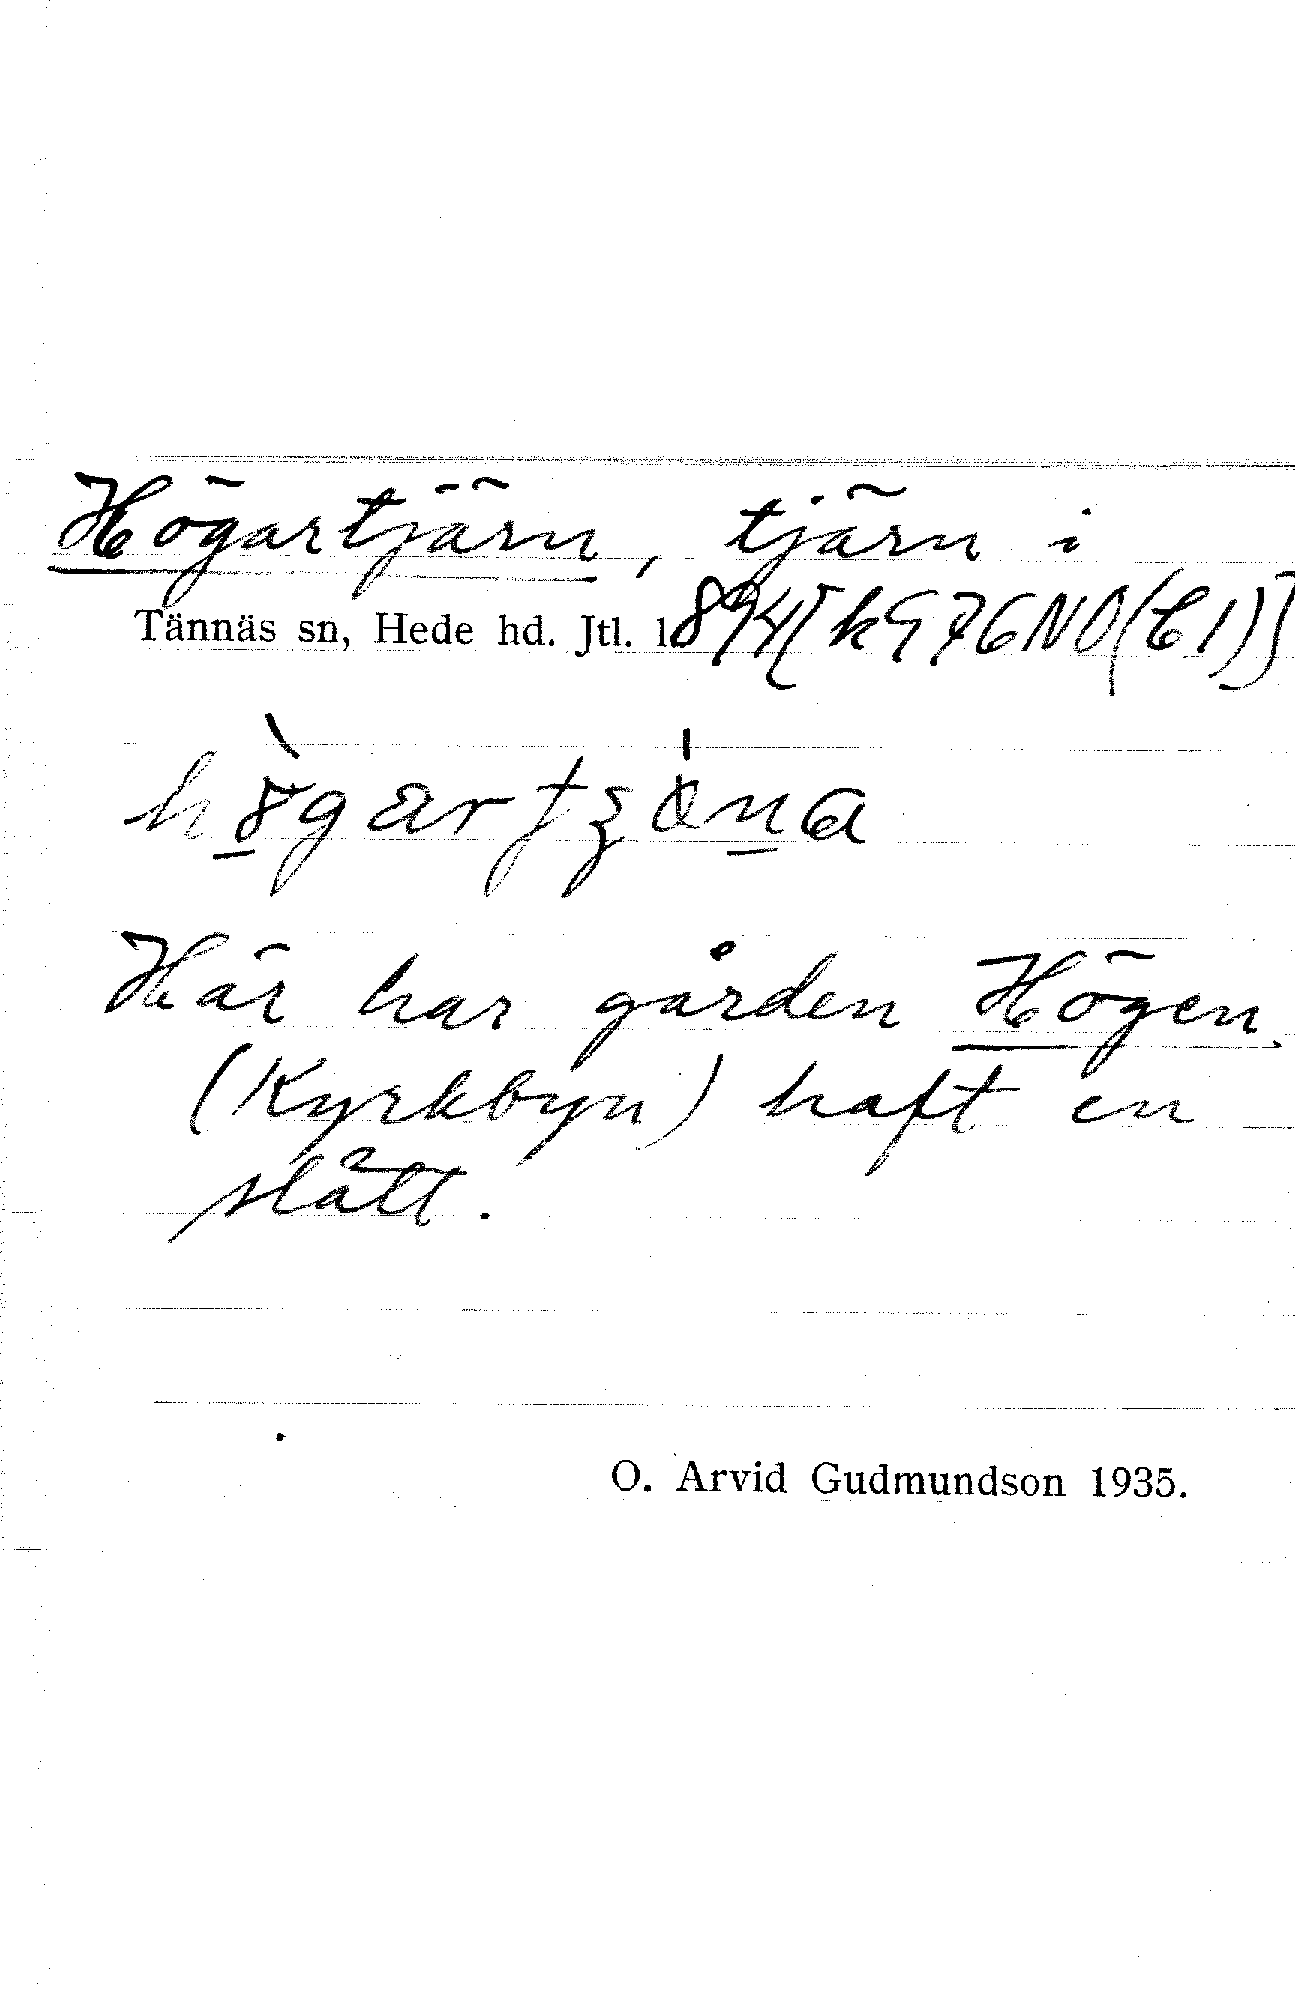 Högartjärn, tjärn i
Tännäs sn, Hede hd. Jtl. 1894[kG76NO(C1)]
Här har gården Högen
(Kyrkbyn) haft en
slått.
O. Arvid Gudmundson 1935.